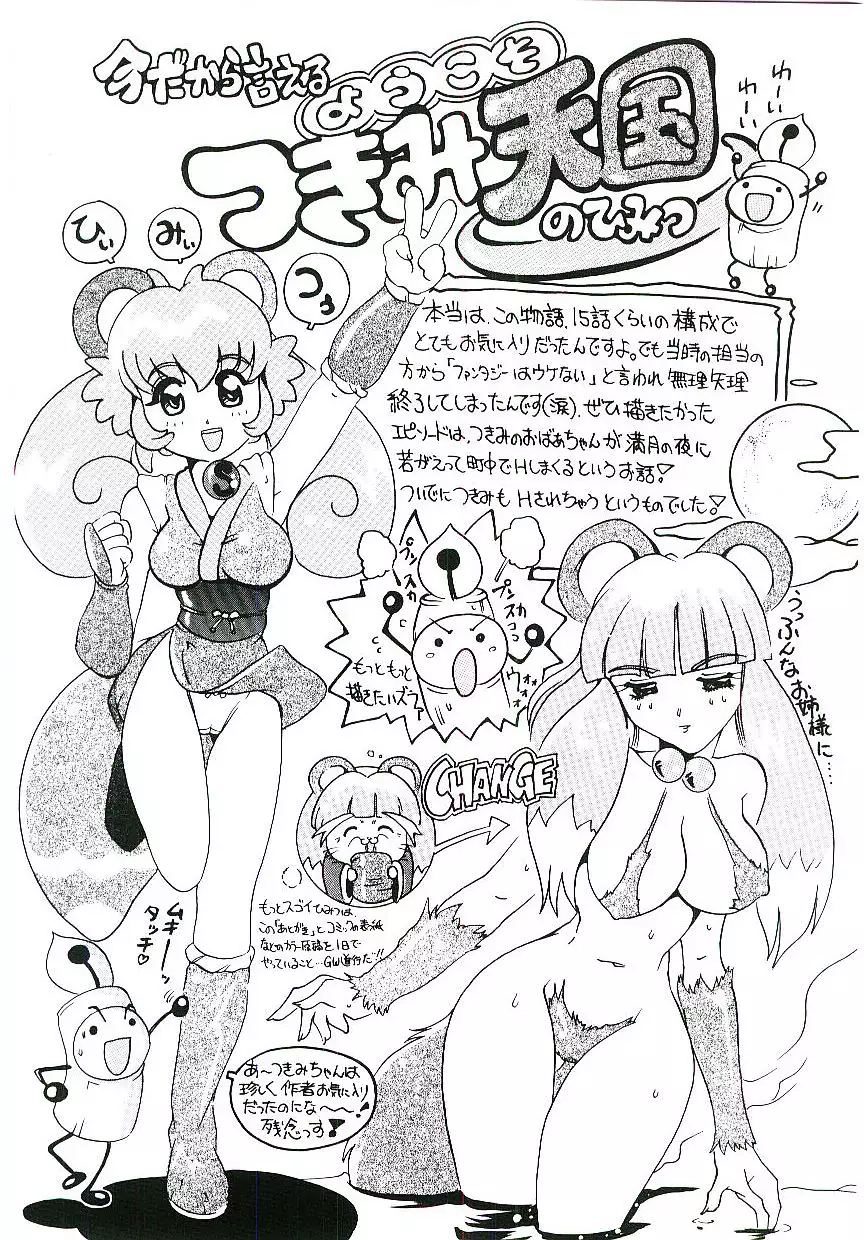 今だから言える
ようこそ
つきみ天国
のひみつ
わーい
わーい
ひぃ
みぃ
つぅ
本当は、この物語、15話くらいの構成で
とてもお気に入りだったんですよ。でも当時の担当の
方から「ファンタジーはウケない」と言われ無理矢理
終了してしまったんです(涙)。ぜひ描きたかった
エピソードは、つきみのおばあちゃんが満月の夜に
若がえって町中でHしまくるというお話!
ついでにつきみもHされちゃうというものでした!
プンスカ
プンスカ
もっともっと
描きたいズラァ
ウォォォ
うっふんなお姉様に……
CHANGE
もっとスゴイひみつは、
この「あとがき」とコミックの表紙
などのカラー原稿を1日で
やっていること…GW進行だ!!
ムキーッ
タッチ♡
あ〜つきみちゃんは
珍しく作者お気に入り
だったのにな〜〜!
残念っす!